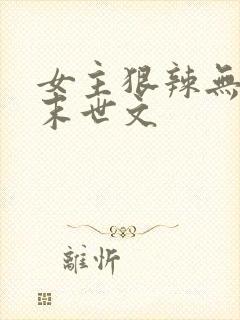 女主狠辣無
末世文
離忻